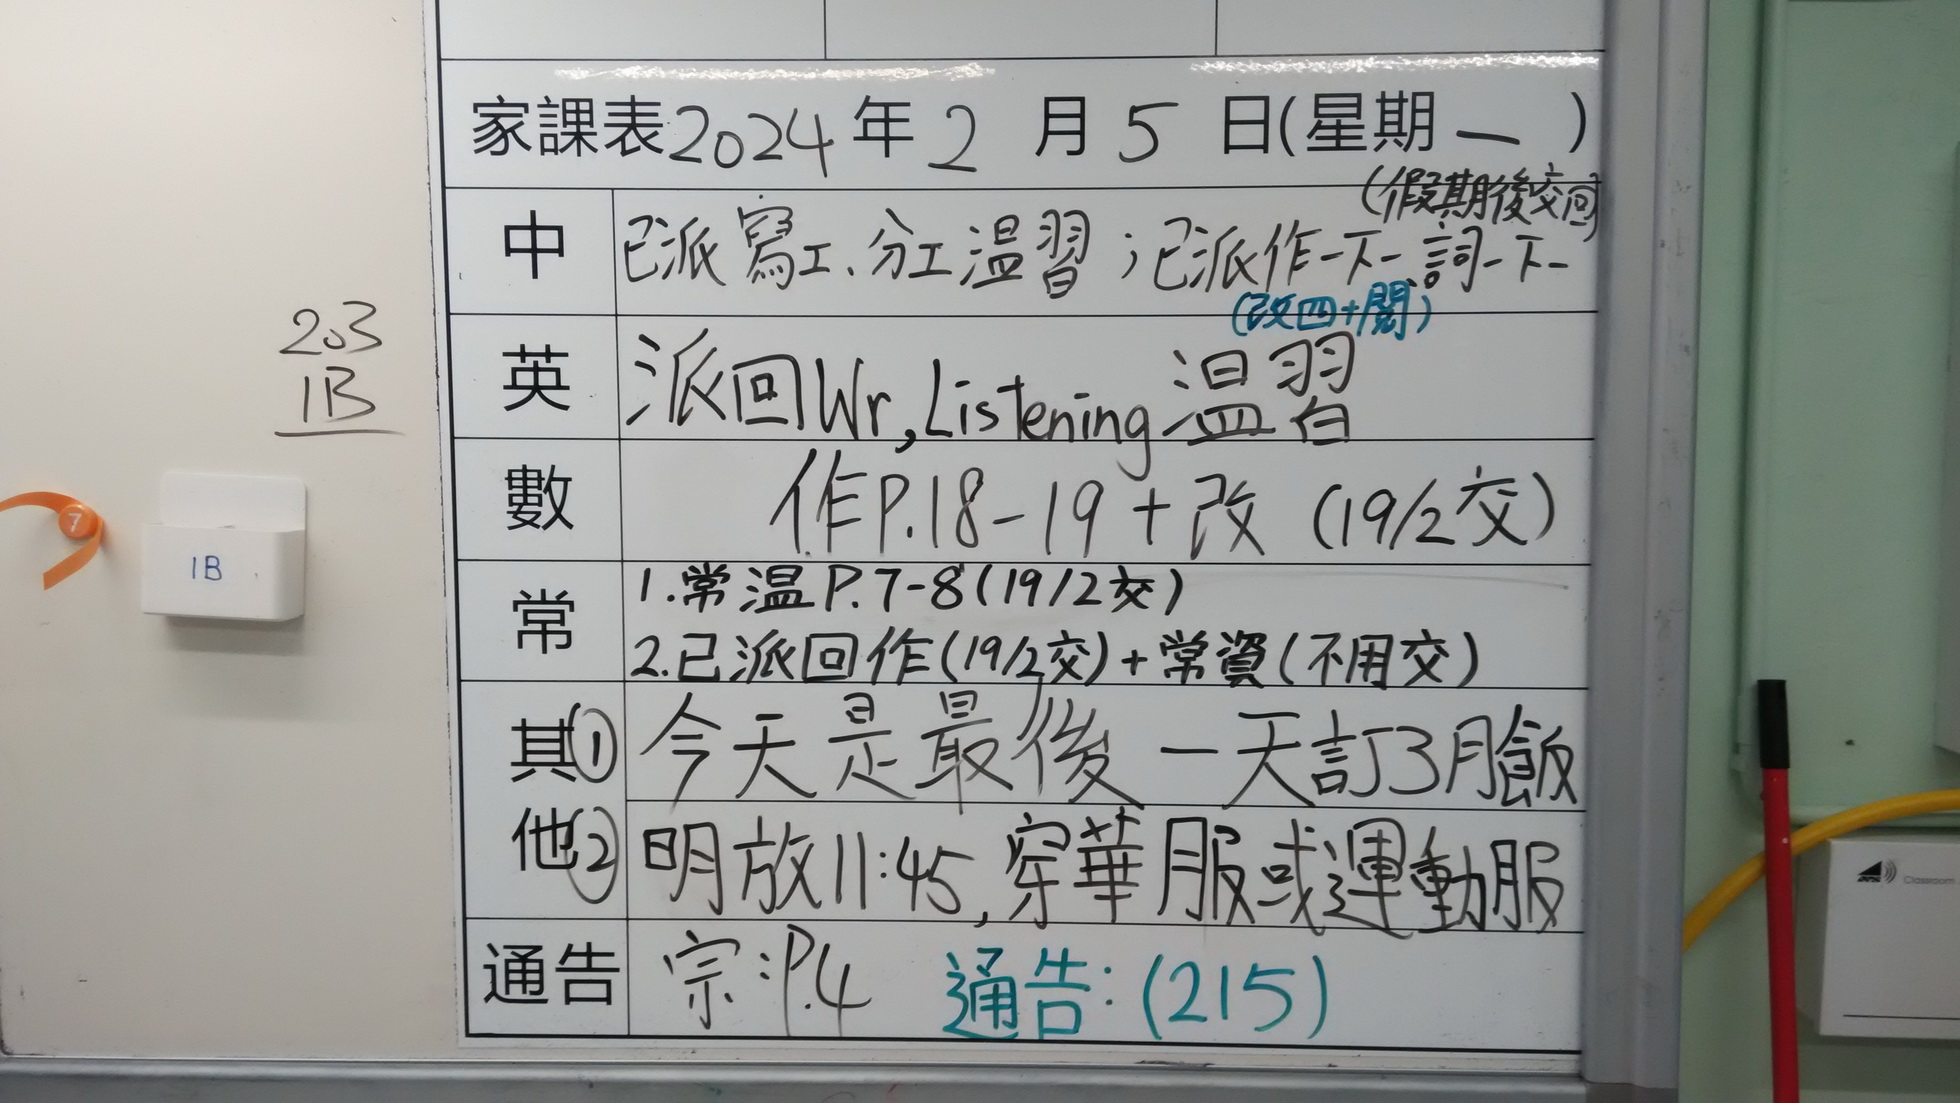 家課表2024年2月5日(星期一)
(假期後交回)
中 已派寫工、分工溫習；已派作一下一、詞一下一
(改四+閱)
英 派回Wr, Listening溫習
數 作P.18-19+改 (19/2交)
常 1.常溫P.7-8(19/2交)
2.已派回作(19/2交)+常資(不用交)
其① 今天是最後一天訂3月飯
他② 明放11:45, 穿華服或運動服
通告 宗:P.4 通告:(215)
203
1B
7
1B
Classroom